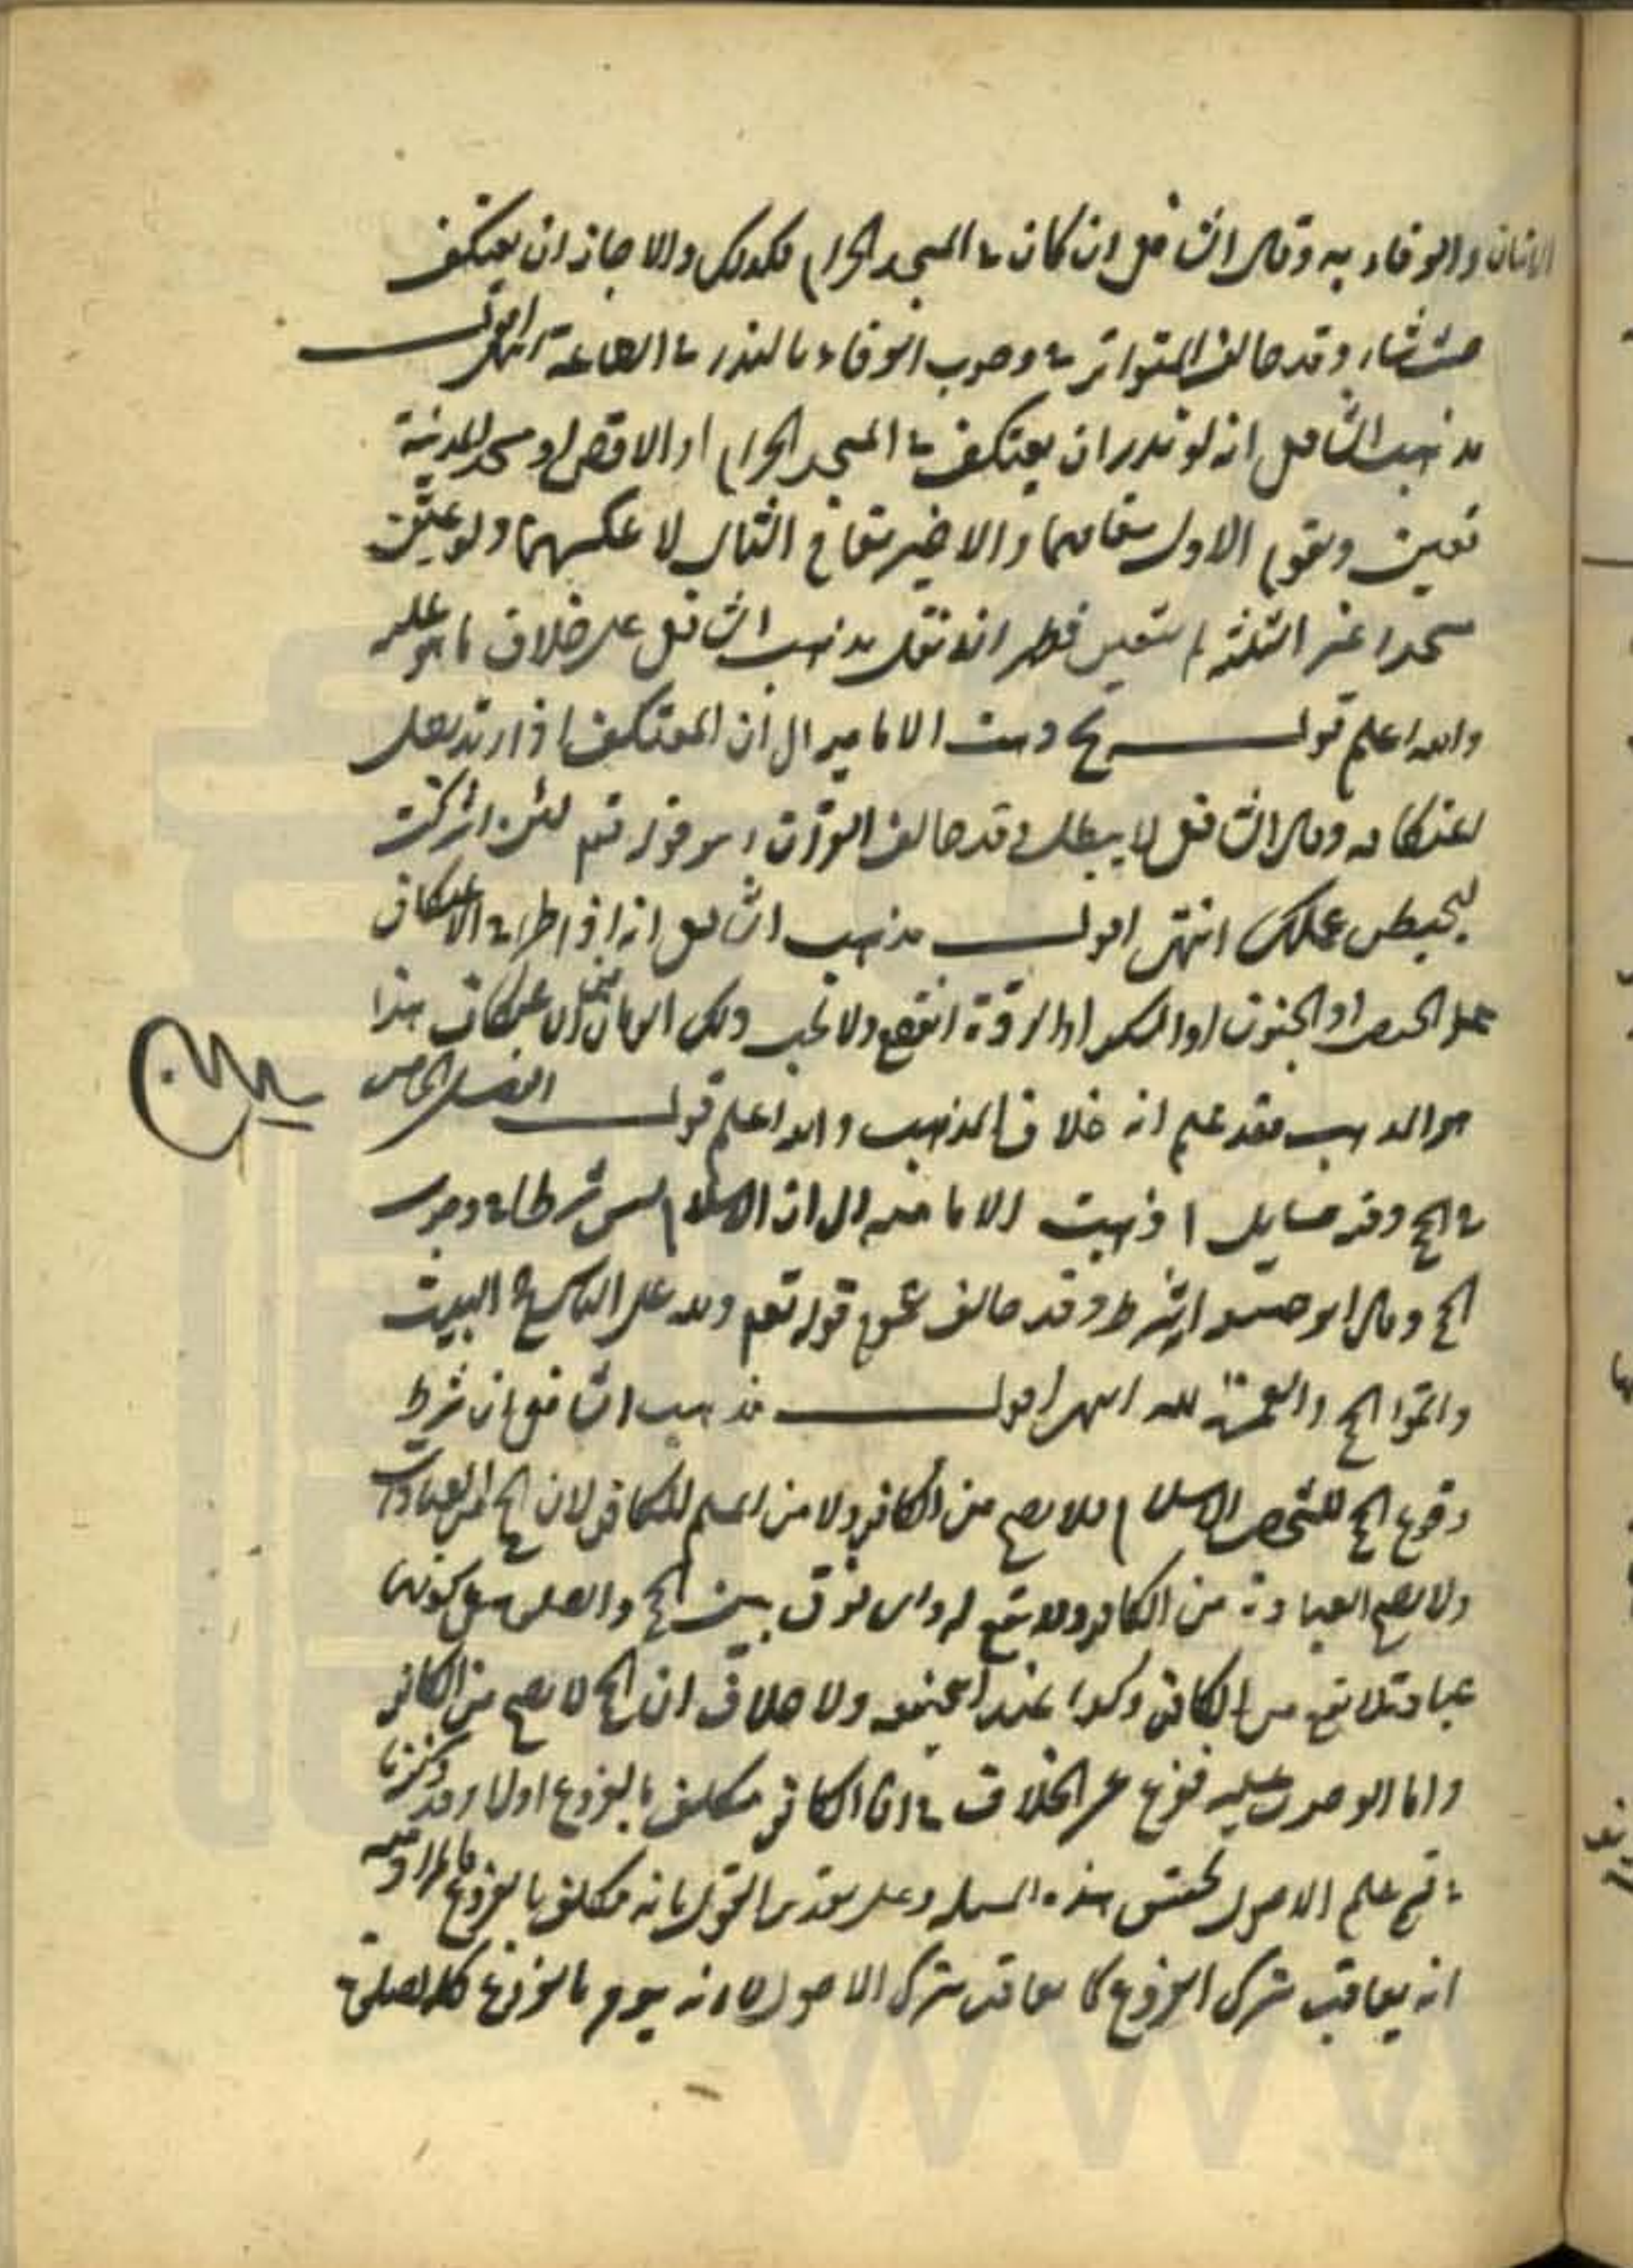 الاتيان والوفاء به وقال الشافعي ان كان في المسجد الحرام فكذلك والا جاز ان يعتكف
حيث شاء وقد خالف المتواتر في وجوب الوفاء بالنذر في الطاعة انتهى اقول
مذهب الشافعي انه لو نذر ان يعتكف في المسجد الحرام او الاقصى او مسجد المدينة
تعين ويقوم الاول مقامهما والاخير مقام الثاني لا عكسهما ولو عين
مسجدا غير الثلثة لم يتعين فظهر انه نقل مذهب الشافعي على خلاف ما هو عليه
والله اعلم قوله ح ذهبت الامامية الى ان المعتكف اذا ارتد بطل
اعتكافه وقال الشافعي لا يبطل وقد خالف القرآن وهو قوله تعم لئن اشركت
ليحبطن عملك انتهى اقول مذهب الشافعي انه اذا طرا في الاعتكاف
على الحيض او الجنون او السكر او الردة انقطع ولا يجب ولكن الاعتكاف هذا
هو المذهب فقد علم انه خلاف المذهب والله اعلم قوله الفصل الخامس
في الحج وفيه مسايل ا ذهبت الامامية الى ان الاسلام ليس شرطا في وجوب
الحج وقال ابو حنيفة انه شرط وقد خالف عموم قوله تعم ولله على الناس حج البيت
واتموا الحج والعمرة لله انتهى اقول مذهب الشافعي ان شرط
وقوع الحج للشخص الاسلام فلا يصح من الكافر ولا من المسلم للكافر لان الحج من العبادات
ولا يصح العبادة من الكافر ولا يقع له واي فرق بين الحج والصلوة في كونها
عبادة لا تقع من الكافر وكذا عند ابي حنيفة ولا خلاف ان الحج لا يصح من الكافر
واما الوجوب عليه ففرع على الخلاف في ان الكافر مكلف بالفروع اولا وقد ذكرنا
في قسم علم الاصول تحقيق هذه المسئلة وعلى تقدير القول بانه مكلف بالفروع فالمراد منه
انه يعاقب بترك الفروع كما يعاقب بترك الاصول لا انه يؤمر بالفروع كالصلوة